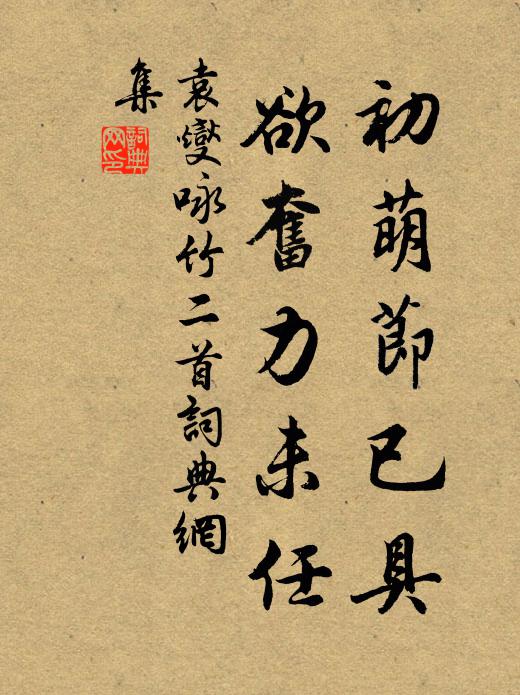 初萌節已具
欲奮力未任
袁燮咏竹二首詞典網
集
詞典
网印